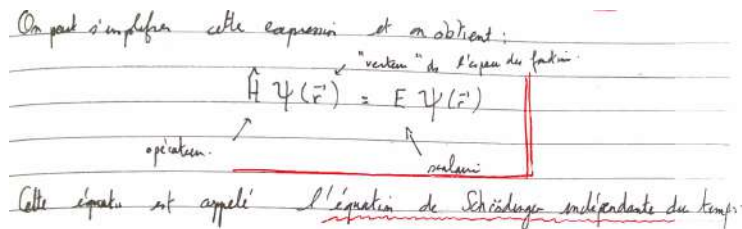 On peut simplifier cette expression et on obtient :
"vecteur" de l'espace des fonctions
Ĥ Ψ(r⃗) = E Ψ(r⃗)
opérateur.
scalaire
Cette équation est appelé l'équation de Schrödinger indépendante du temps.